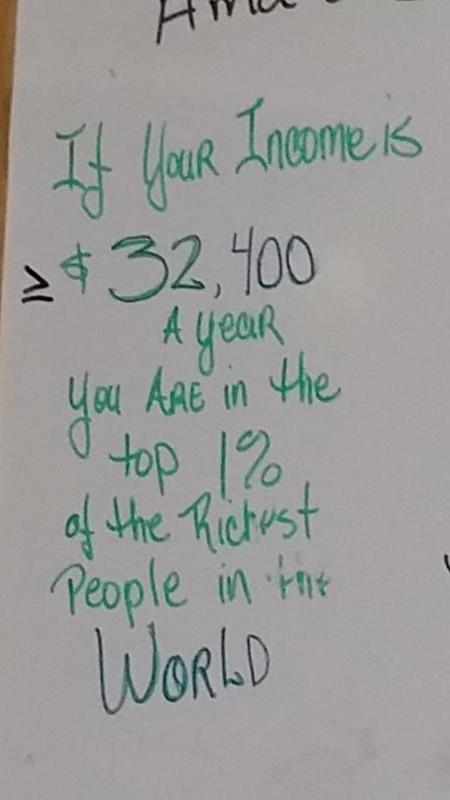 If Your Income is
≥ $ 32,400
A year
you ARE in the
top 1%
of the Richest
People in the
WORLD